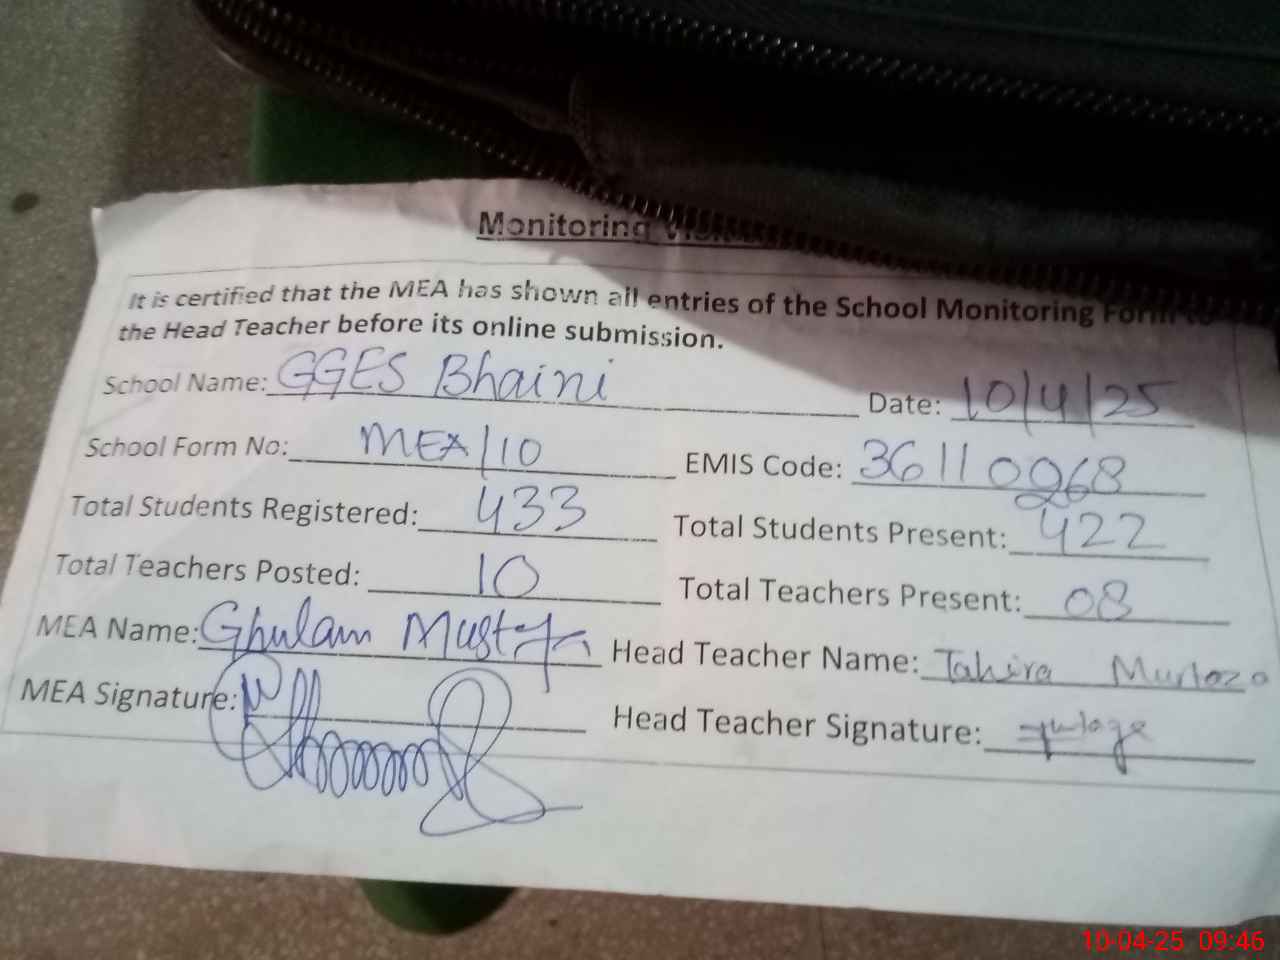 Monitoring
It is certified that the MEA has shown all entries of the School Monitoring Form to
the Head Teacher before its online submission.
School Name: GGES Bhaini Date: 10/4/25
School Form No: MEA/10 EMIS Code: 36110268
Total Students Registered: 433 Total Students Present: 422
Total Teachers Posted: 10 Total Teachers Present: 08
MEA Name: Ghulam Mustafa Head Teacher Name: Tahira Murtaza
MEA Signature: Head Teacher Signature:
10-04-25 09:46